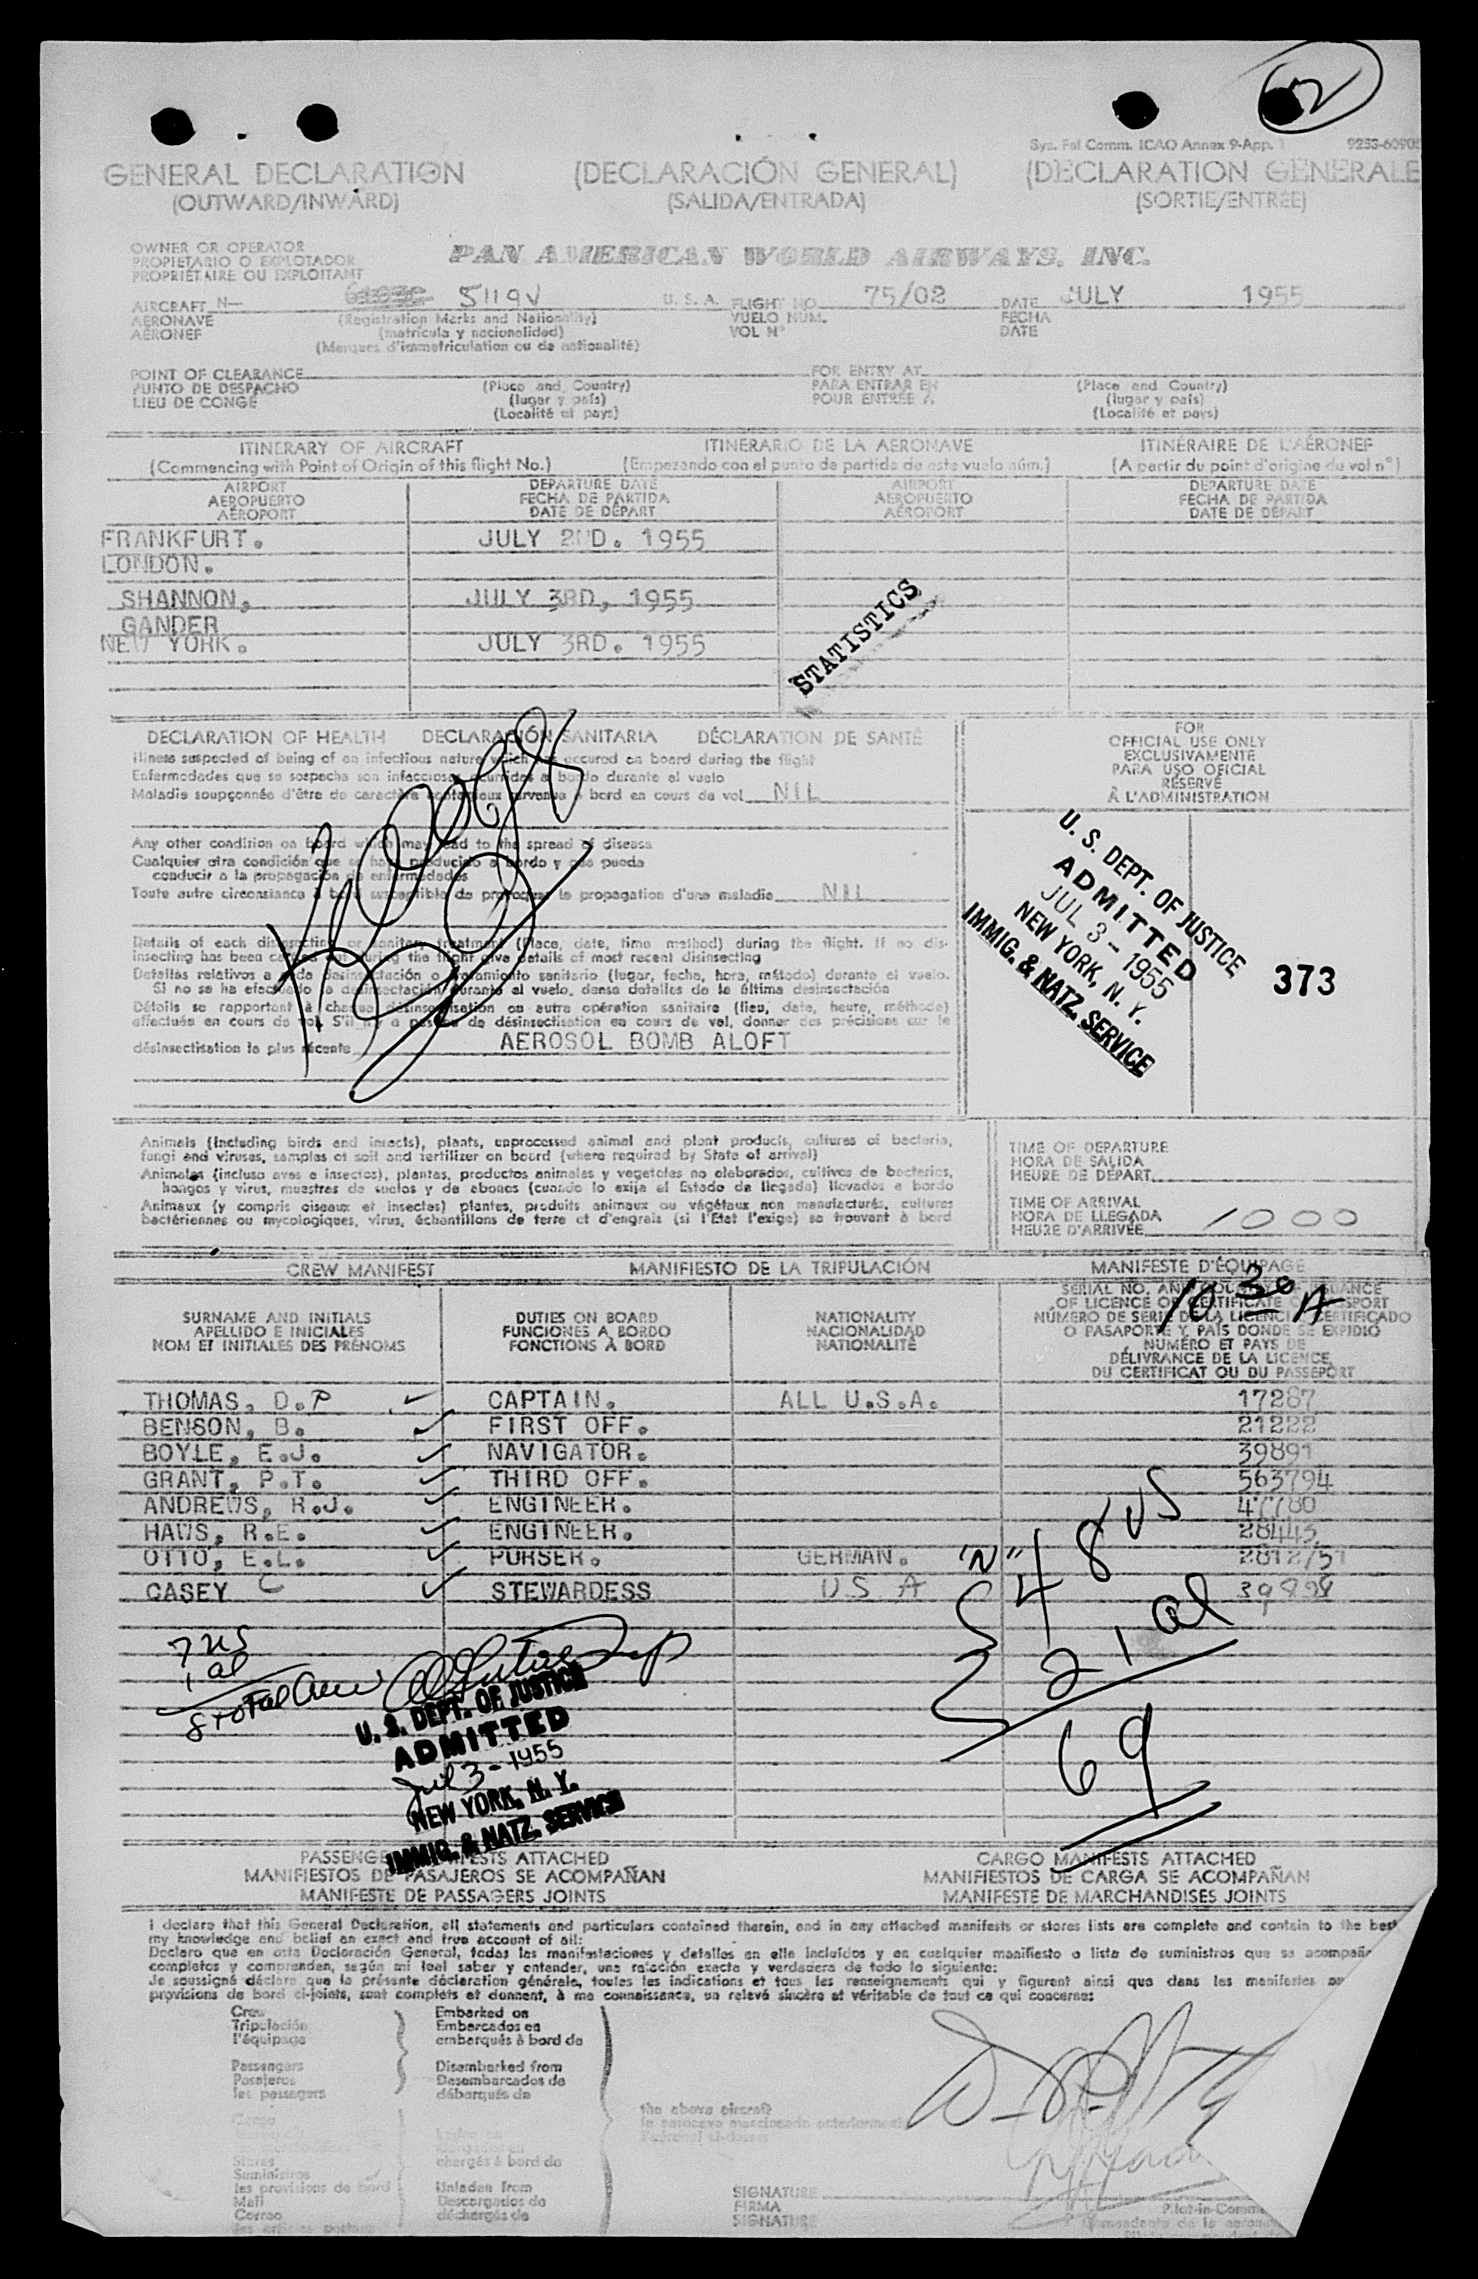 2
Sys. Fal Comm. ICAO Annex 9-App. 1
GENERAL DECLARATION (DECLARACIÓN GENERAL) (DECLARATION GENERALE
(OUTWARD/INWARD) (SALIDA/ENTRADA) (SORTIE/ENTRÉE)
OWNER OR OPERATOR
PROPIETARIO O EXPLOTADOR
PROPRIÉTAIRE OU EXPLOITANT
PAN AMERICAN WORLD AIRWAYS, INC.
AIRCRAFT N- 5119V U. S. A. FLIGHT NO. 75/02 DATE JULY 1955
AERONAVE (Registration Marks and Nationality) VUELO NUM. FECHA
AÉRONEF (matrícula y nacionalidad) VOL Nº DATE
(Marques d'immatriculation ou de nationalité)
POINT OF CLEARANCE FOR ENTRY AT
PUNTO DE DESPACHO (Place and Country) PARA ENTRAR EN (Place and Country)
LIEU DE CONGÉ (lugar y país) POUR ENTRÉE A (lugar y país)
(Localité et pays) (Localité et pays)
ITINERARY OF AIRCRAFT ITINERARIO DE LA AERONAVE ITINÉRAIRE DE L'AÉRONEF
(Commencing with Point of Origin of this flight No.) (Empezando con el punto de partida de este vuelo núm.) (A partir du point d'origine du vol nº)
AIRPORT DEPARTURE DATE AIRPORT DEPARTURE DATE
AEROPUERTO FECHA DE PARTIDA AEROPUERTO FECHA DE PARTIDA
AÉROPORT DATE DE DÉPART AÉROPORT DATE DE DÉPART
FRANKFURT. JULY 2ND. 1955
LONDON.
SHANNON, JULY 3RD, 1955
GANDER
NEW YORK. JULY 3RD. 1955
STATISTICS
DECLARATION OF HEALTH DECLARACIÓN SANITARIA DÉCLARATION DE SANTÉ
Illness suspected of being of an infectious nature which has occured on board during the flight
Enfermedades que se sospecha son infecciosas ocurridas a bordo durante el vuelo
Maladie soupçonnée d'être de caractère contagieux survenue à bord en cours de vol NIL
Any other condition on board which may lead to the spread of disease
Cualquier otra condición que se haya producido a bordo y que pueda
conducir a la propagación de enfermedades
Toute autre circonstance à bord susceptible de provoquer la propagation d'une maladie NIL
Details of each disinsecting or sanitary treatment (Place, date, time method) during the flight. If no dis-
insecting has been carried out during the flight give details of most recent disinsecting
Detalles relativos a cada desinsectación o tratamiento sanitario (lugar, fecha, hora, método) durante el vuelo.
Si no se ha efectuado la desinsectación durante el vuelo, dense detalles de la última desinsectación
Détails se rapportant à chaque désinsectisation ou autre opération sanitaire (lieu, date, heure, méthode)
effectuée en cours de vol. S'il n'y a pas eu de désinsectisation en cours de vol, donner des précisions sur la
désinsectisation la plus récente AEROSOL BOMB ALOFT
FOR
OFFICIAL USE ONLY
EXCLUSIVAMENTE
PARA USO OFICIAL
RÉSERVÉ
À L'ADMINISTRATION
U. S. DEPT. OF JUSTICE
ADMITTED
JUL 3 - 1955
NEW YORK, N. Y.
IMMIG. & NATZ. SERVICE
373
Animals (including birds and insects), plants, unprocessed animal and plant products, cultures of bacteria,
fungi and viruses, samples of soil and fertilizer on board (where required by State of arrival)
Animales (incluso aves e insectos), plantas, productos animales y vegetales no elaborados, cultivos de bacterias,
hongos y virus, muestras de suelos y de abonos (cuando lo exija el Estado de llegada) llevados a bordo
Animaux (y compris oiseaux et insectes) plantes, produits animaux ou végétaux non manufacturés, cultures
bactériennes ou mycologiques, virus, échantillons de terre et d'engrais (si l'État l'exige) se trouvant à bord
TIME OF DEPARTURE
HORA DE SALIDA
HEURE DE DÉPART
TIME OF ARRIVAL
HORA DE LLEGADA
HEURE D'ARRIVÉE 1000
1030 A
CREW MANIFEST MANIFIESTO DE LA TRIPULACIÓN MANIFESTE D'ÉQUIPAGE
SURNAME AND INITIALS DUTIES ON BOARD NATIONALITY SERIAL NO. AND COUNTRY OF ISSUANCE
APELLIDO E INICIALES FUNCIONES A BORDO NACIONALIDAD OF LICENCE OR CERTIFICATE OR PASSPORT
NOM ET INITIALES DES PRÉNOMS FONCTIONS À BORD NATIONALITÉ NÚMERO DE SERIE DE LA LICENCIA CERTIFICADO
O PASAPORTE Y PAÍS DONDE SE EXPIDIÓ
NUMÉRO ET PAYS DE
DÉLIVRANCE DE LA LICENCE,
DU CERTIFICAT OU DU PASSEPORT
THOMAS, D.P CAPTAIN. ALL U.S.A. 17287
BENSON, B. FIRST OFF. 21222
BOYLE, E.J. NAVIGATOR. 39891
GRANT, P.T. THIRD OFF. 563794
ANDREWS, R.J. ENGINEER.
HAWS, R.E. ENGINEER. 28445
OTTO, E.L. PURSER. GERMAN. "N"
CASEY C STEWARDESS U S A
48 US
21 al
69
7 US
1 al
8 total crew
U. S. DEPT. OF JUSTICE
ADMITTED
Jul 3 - 1955
NEW YORK, N. Y.
IMMIG. & NATZ. SERVICE
PASSENGER MANIFESTS ATTACHED CARGO MANIFESTS ATTACHED
MANIFIESTOS DE PASAJEROS SE ACOMPAÑAN MANIFIESTOS DE CARGA SE ACOMPAÑAN
MANIFESTE DE PASSAGERS JOINTS MANIFESTE DE MARCHANDISES JOINTS
I declare that this General Declaration, all statements and particulars contained therein, and in any attached manifests or stores lists are complete and contain to the best
my knowledge and belief an exact and true account of all:
Declaro que en esta Declaración General, todas las manifestaciones y detalles en ella incluidos y en cualquier manifiesto o lista de suministros que se acompañ
completos y comprenden, según mi leal saber y entender, una relación exacta y verdadera de todo lo siguiente:
Je soussigné déclare que la présente déclaration générale, toutes les indications et tous les renseignements qui y figurent ainsi que dans les manifestes
provisions de bord ci-joints, sont complets et donnent, à ma connaissance, un relevé sincère et véritable de tout ce qui concerne:
Crew Embarked on
Tripulación Embarcados en
l'équipage embarqués à bord de
Passengers Disembarked from
Pasajeros Desembarcados de
les passagers débarqués de
the above aircraft
Cargo
Stores chargés à bord de
Suministros
les provisions de bord Unladen from
Mail Descargados de
Correo déchargés de
SIGNATURE
FIRMA
SIGNATURE
Pilot-in-Comm